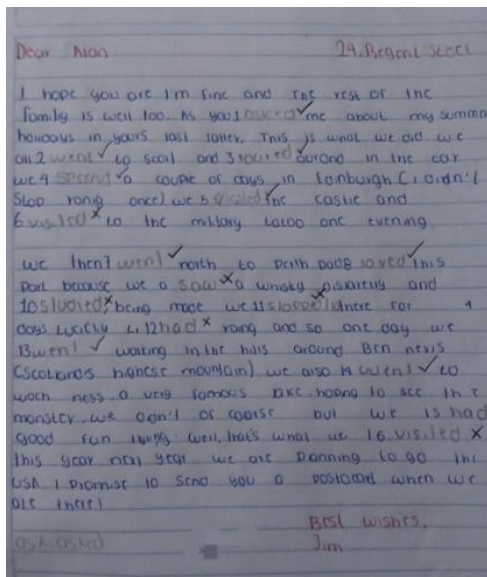 Dear Alan 29, Regent steet
I hope you are I'm fine and the rest of the
family is well too. As you 1 asked ✓ me about my summa
holidays in yours last latter, This is what we did we
all 2 went ✓ to scotl and 3 toured ✓ around in the car
we 4 second ✓ a couple of days in Edinburgh (i didn't
stop rang once) we 5 the castle and
6 visited × to the military tatoo one evening
we then 7 went ✓ north to perth 8 loved ✓ this
part because we 9 saw × a whisky and
10 studied × being made we 11 stopped there for 4
days lucky 12 had × raing and so one day we
13 went ✓ walking in the hills around Ben nevis
(scotland's highest mountain) we also 14 went ✓ to
loch ness a very famous lake, hoping to see the
monster. we didn't of coarse but we 15 had
good fun Well, that's what we 16 visited ×
this year next year we are planning to go the
USA I promise to send you a postcard when we
are there!
Best wishes,
ask-asked Jim